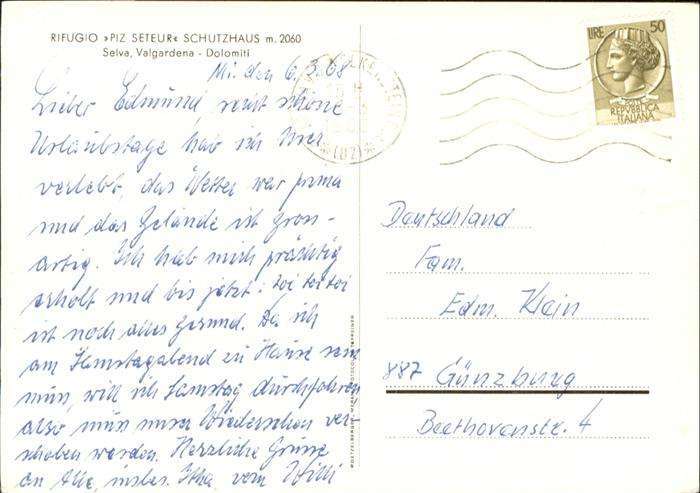 RIFUGIO »PIZ SETEUR« SCHUTZHAUS m. 2060
Selva, Valgardena - Dolomiti
Mi. den 6.3.68
Lieber Edmund, recht schöne
Urlaubstage hab ich hier
verlebt, das Wetter war prima
und das Gelände ist gross-
artig. Ich hab mich prächtig
erholt und bis jetzt: toi toi toi
ist noch alles gesund. Da ich
am Samstagabend zu Hause sein
muss, will ich Samstag durchfahren
also muss unser Wiedersehen ver-
schoben werden. Herzliche Grüsse
an Alle, insbes. vom Willi
LIRE 50
REPVBBLICA
ITALIANA
(BZ)
Deutschland
Fam.
Edm. Klein
887 Günzburg
Beethovenstr. 4